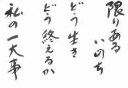 限りある
いのち
どう生き
どう終えるか
私の一大事